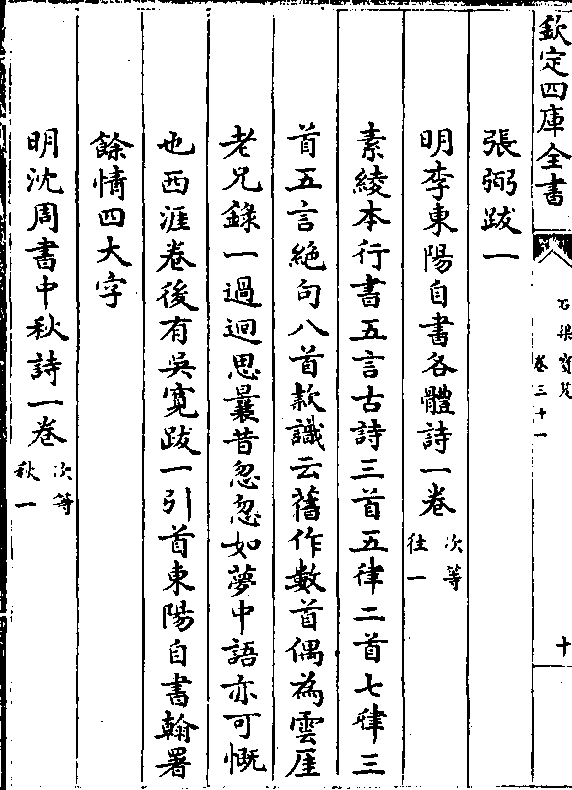 欽定四庫全書
石渠寶笈
卷三十一
十
張弼跋一
明李東陽自書各體詩一卷次等
往一
素綾本行書五言古詩三首五律二首七律三
首五言絕句八首款識云舊作數首偶為雲厓
老兄錄一過迴思曩昔忽忽如夢中語亦可慨
也西涯卷後有吳寛跋一引首東陽自書翰署
餘情四大字
明沈周書中秋詩一卷次等
秋一